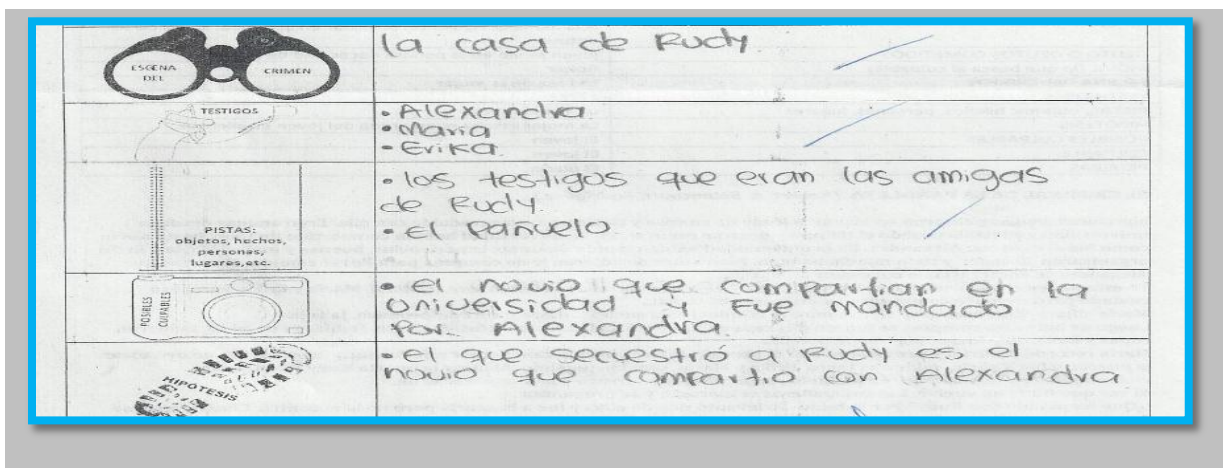 ESCENA DEL CRIMEN
la casa de Rudy
TESTIGOS
• Alexandra
• Maria
• Erika.
PISTAS:
objetos, hechos,
personas,
lugares,etc.
• los testigos que eran las amigas
de Rudy.
• El Pañuelo
POSIBLES
CULPABLES
• el novio que compartian en la
universidad y Fue mandado
por Alexandra.
HIPOTESIS
• el que secuestró a Rudy es el
novio que compartio con Alexandra